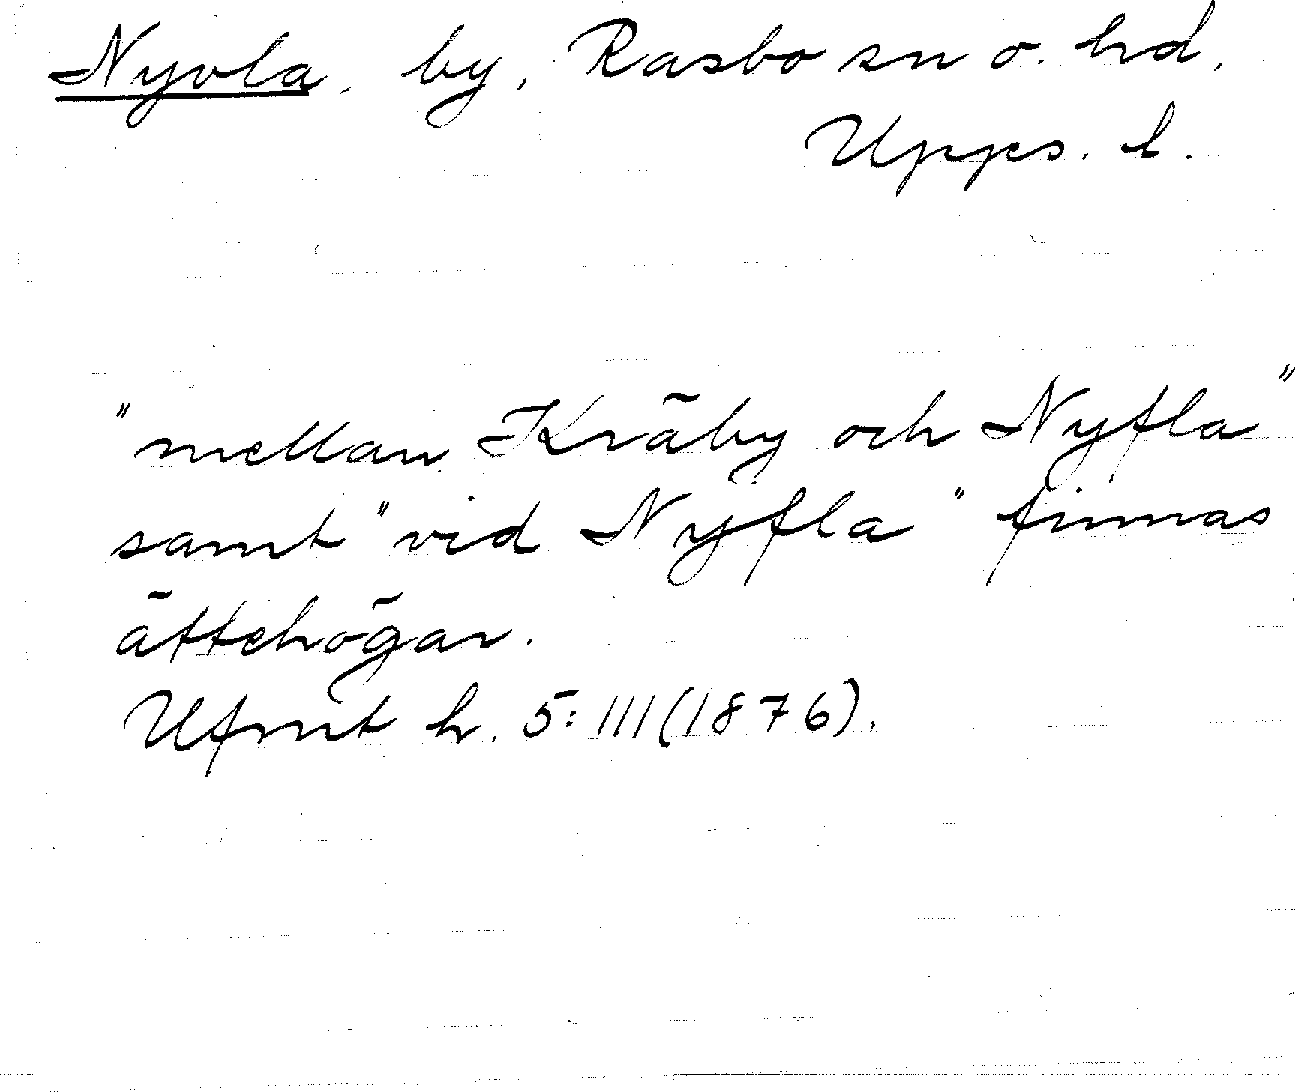 Nyvla, by, Rasbo sn o. hd,
Upps. l.
"mellan Kräby och Nyfla"
samt "vid Nyfla" finnas
ättehögar.
Ufmt h. 5: 111 (1876).